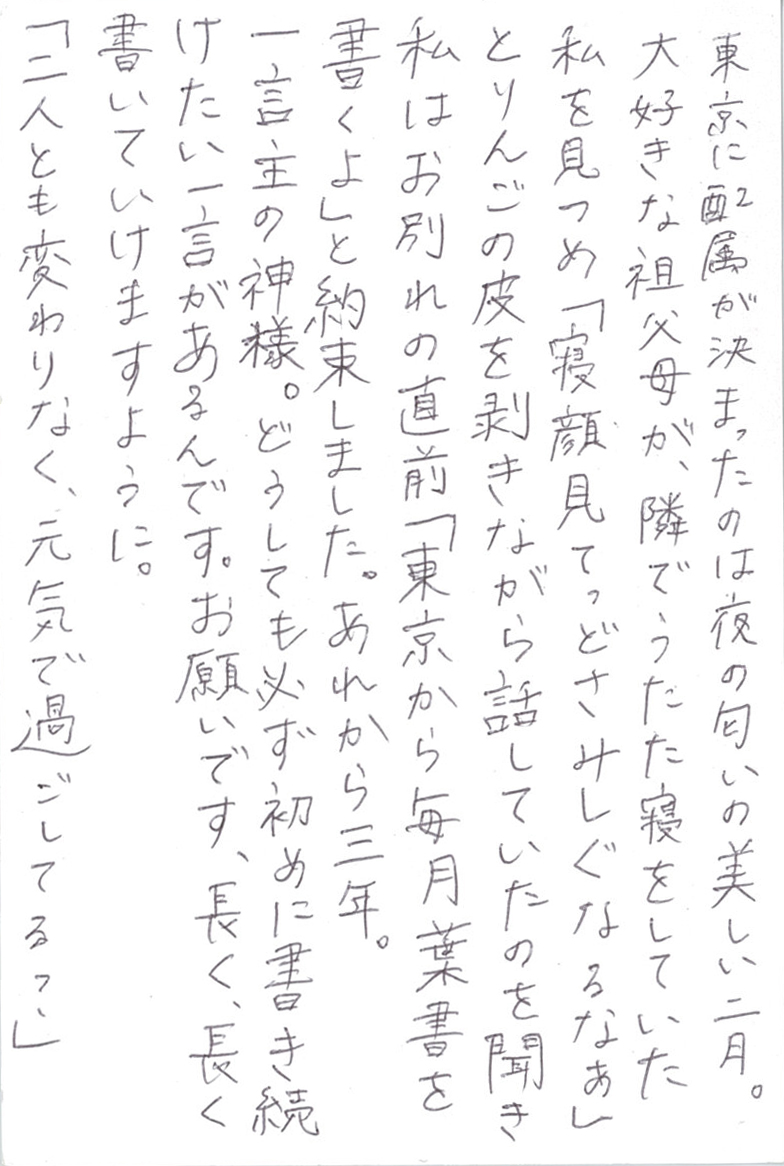 東京に配属が決まったのは夜の匂いの美しい二月。
大好きな祖父母が、隣でうたた寝をしていた
私を見つめ「寝顔見てっどさみしぐなるなぁ」
とりんごの皮を剥きながら話していたのを聞き
私はお別れの直前「東京から毎月葉書を
書くよ」と約束しました。あれから三年。
一言主の神様。どうしても必ず初めに書き続
けたい一言があるんです。お願いです、長く、長く
書いていけますように。
「二人とも変わりなく、元気で過ごしてるっ」